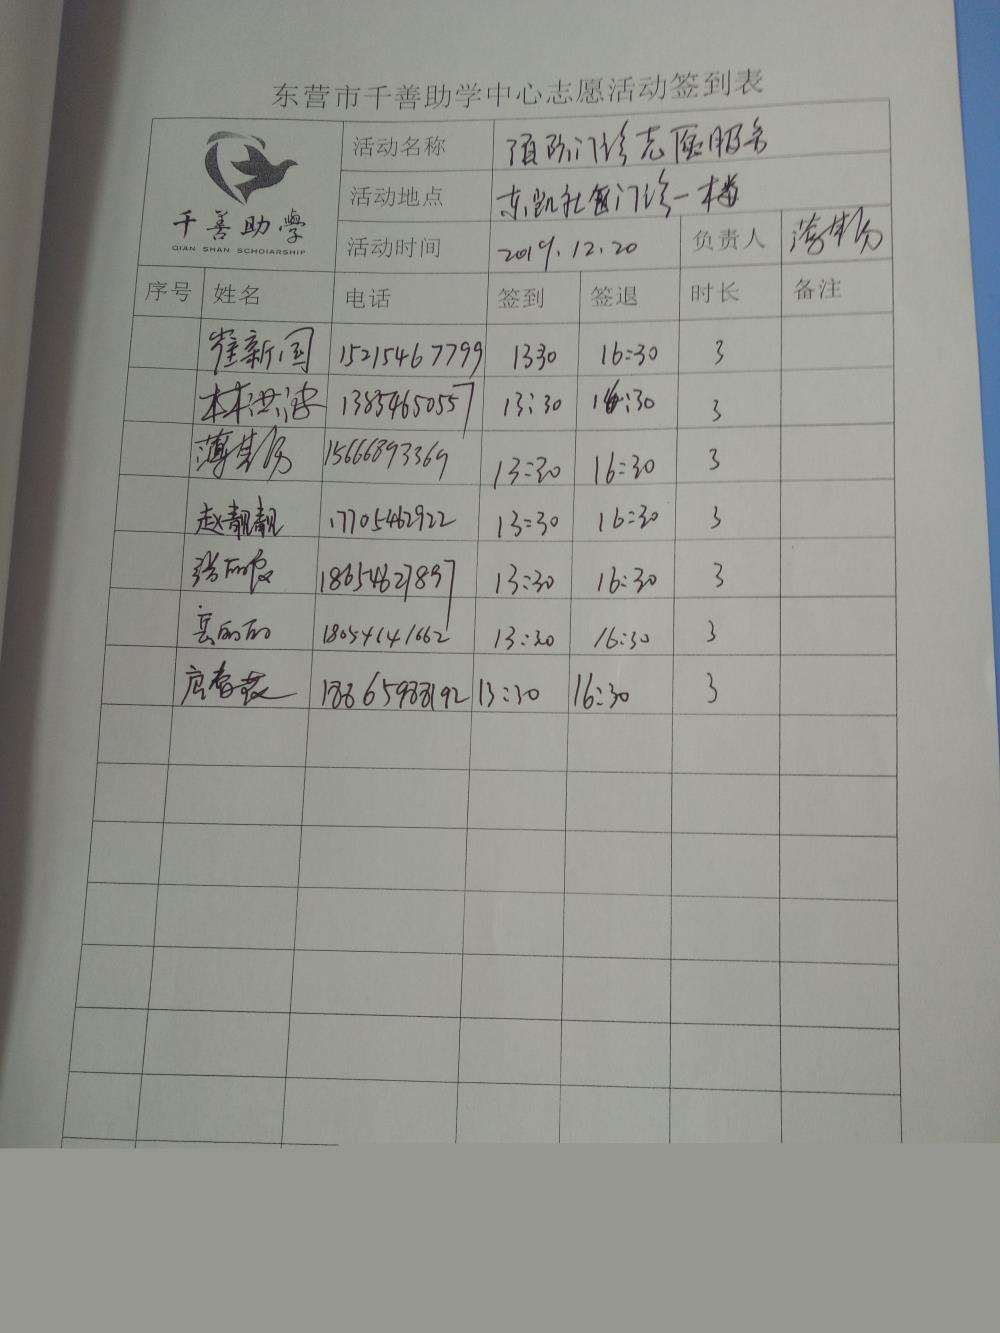 东营市千善助学中心志愿活动签到表
千善助學
QIAN SHAN SCHOIARSHIP
活动名称 预防门诊志愿服务
活动地点 东凯社区门诊一楼
活动时间 2019.12.20 负责人
序号 姓名 电话 签到 签退 时长 备注
崔新国 15215467799 1330 16:30 3
林洪波 13854650557 13:30 16:30 3
15666893369 13:30 16:30 3
赵靓靓 17705462922 13:30 16:30 3
18654627897 13:30 16:30 3
13:30 16:30 3
13:30 16:30 3